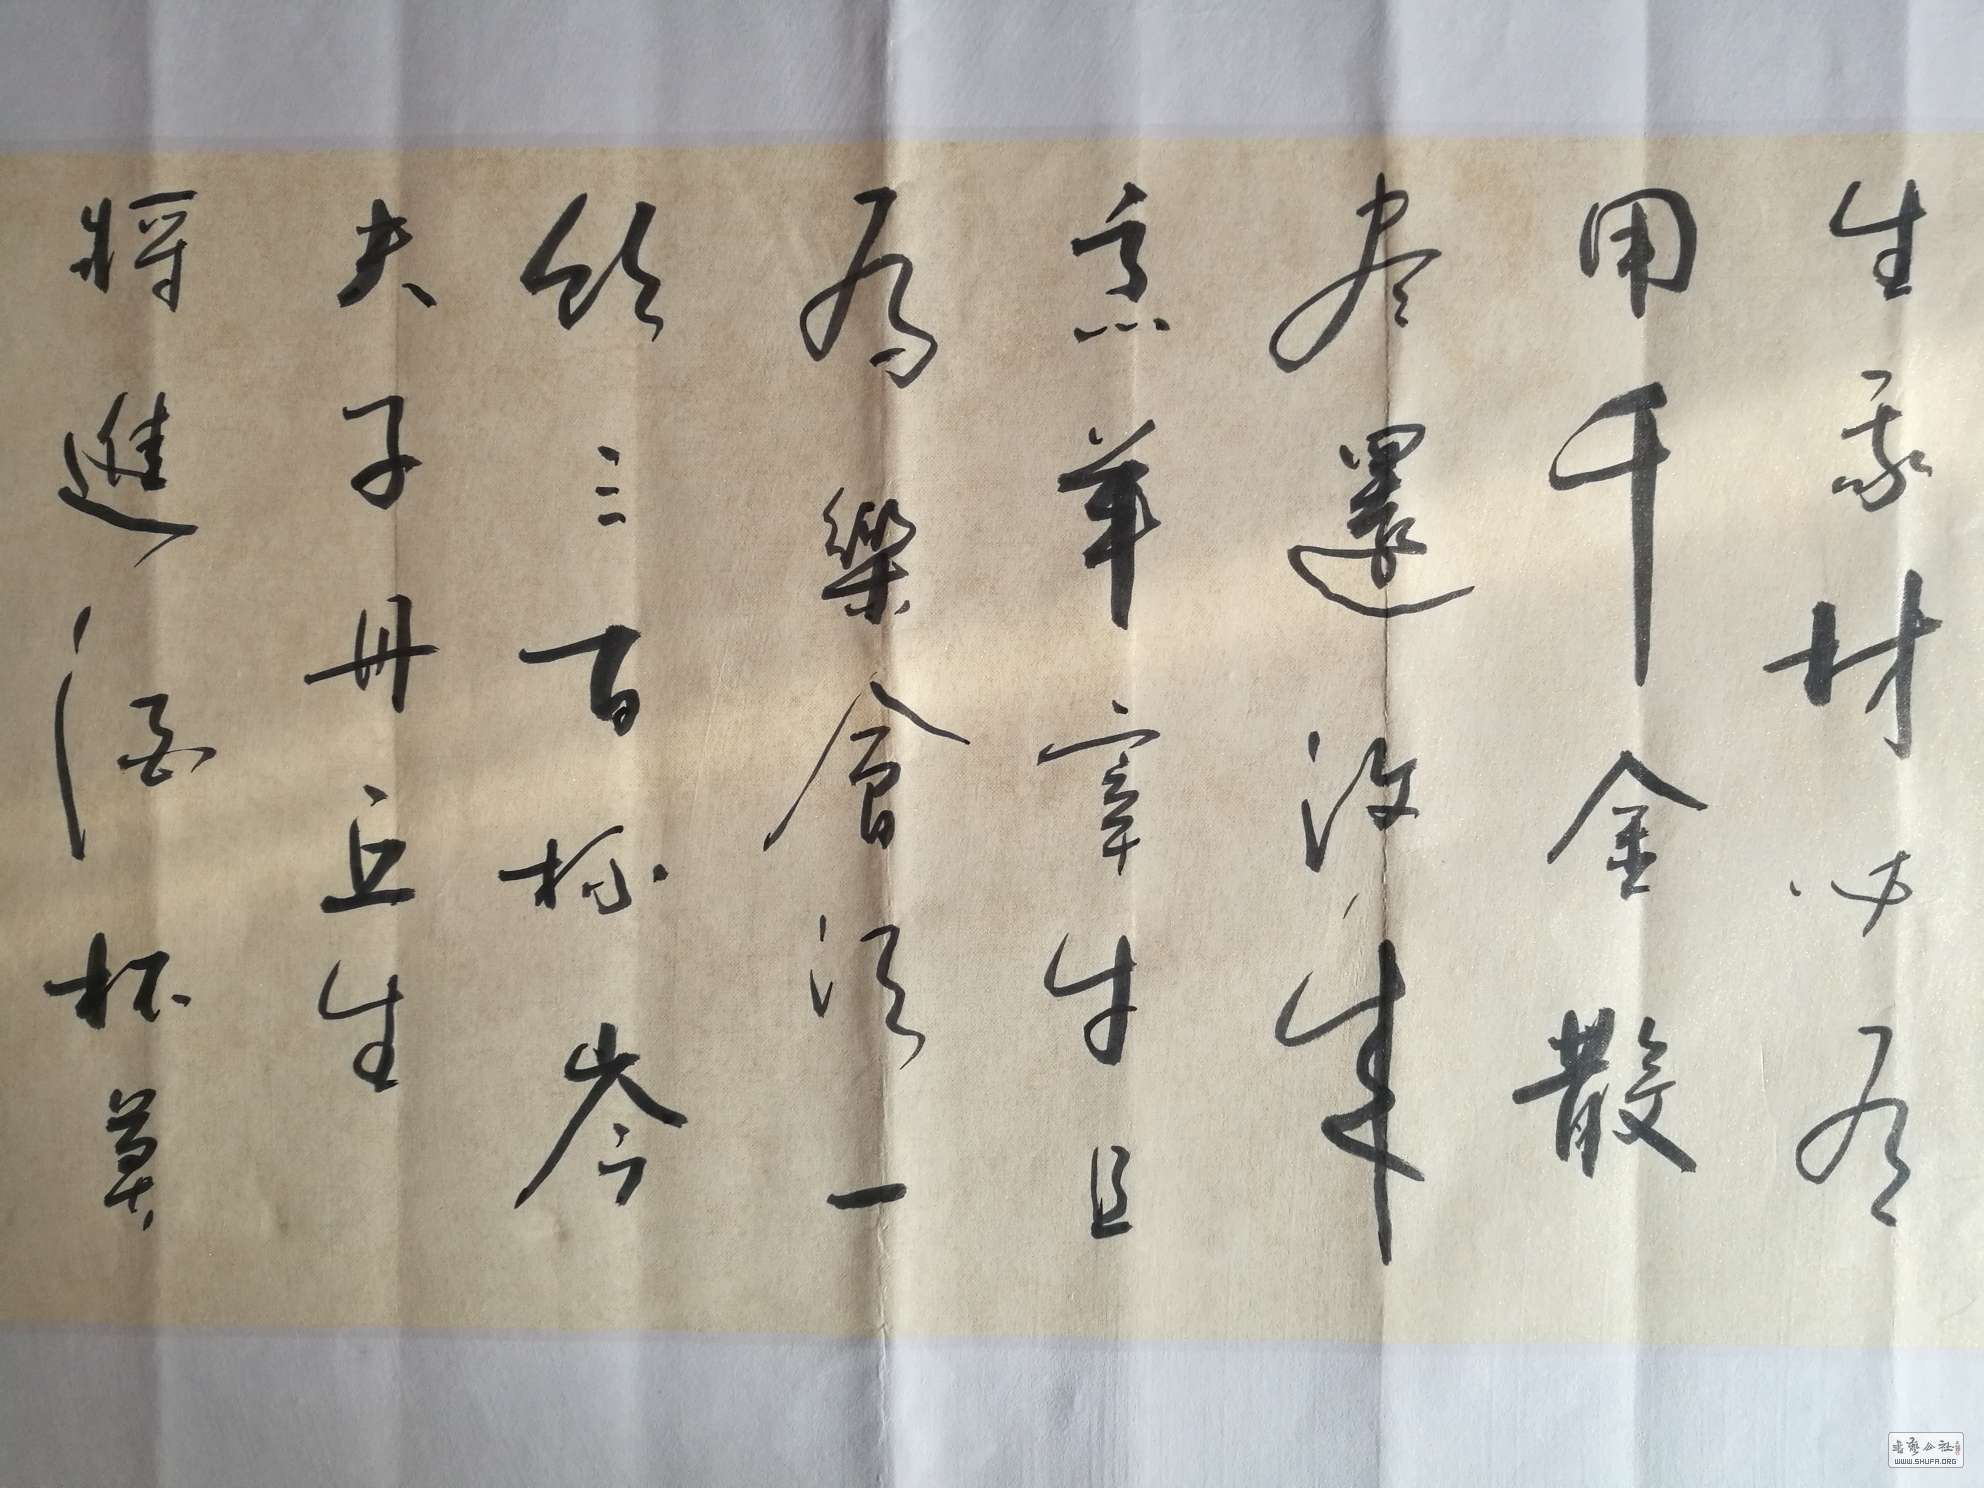 生我材必有
用千金散
尽還復来
烹羊宰牛且
为樂會須一
飲三百杯岑
夫子丹丘生
將進酒杯莫
书艺公社
WWW.SHUFA.ORG